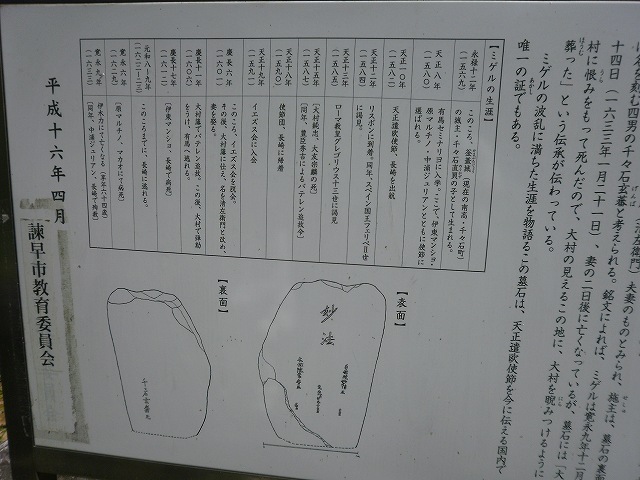 は名を刻む四男の千々石玄蕃と考えられる。銘文によれば、ミゲルは寛永九年十二月
十四日（一六三三年一月二十一日）、妻の二日後に亡くなっているが、墓石には「大
村に恨みをもって死んだので、大村の見えるこの地に、大村を睨みつけるように
葬った」という伝承が伝わっている。
ミゲルの波乱に満ちた生涯を物語るこの墓石は、天正遣欧使節を今に伝える国内で
唯一の証でもある。
【ミゲルの生涯】
永禄十二年
（一五六九）
このころ、釜蓋城（現在の南高・千々石町）
の城主・千々石直員の子として生まれる。
天正八年
（一五八〇）
有馬セミナリヨに入学。ここで、伊東マンショ・
原マルチノ・中浦ジュリアンとともに使節に
選ばれる。
天正一〇年
（一五八二）
天正遣欧使節、長崎を出航
天正十二年
（一五八四）
リスボンに到着。同年、スペイン国王フェリペⅡ世
に謁見。
天正十三年
（一五八五）
ローマ教皇グレゴリウス十三世に謁見
天正十五年
（一五八七）
［大村純忠、大友宗麟の死］
［同年、豊臣秀吉によるバテレン追放令］
天正十八年
（一五九〇）
使節団、長崎に帰着
天正十九年
（一五九一）
イエズス会に入会
慶長六年
（一六〇一）
このころ、イエズス会を脱会。
その後、大村藩に仕え、名を清左衛門と改め、
妻を娶る。
慶長十一年
（一六〇六）
大村藩でバテレン追放。この後、大村で襲動
をうけ、有馬へ逃れる。
慶長十七年
（一六一二）
［伊東マンショ、長崎で病死］
元和八～九年
（一六二二～二三）
このころまでに、長崎に逃れる。
寛永六年
（一六二九）
［原マルチノ、マカオにて病死］
寛永九年
（一六三三）
伊木力にて亡くなる（享年六十四歳）
［同年、中浦ジュリアン、長崎で殉教］
【表面】
妙法
【裏面】
千々石玄蕃允
平成十六年四月
諫早市教育委員会